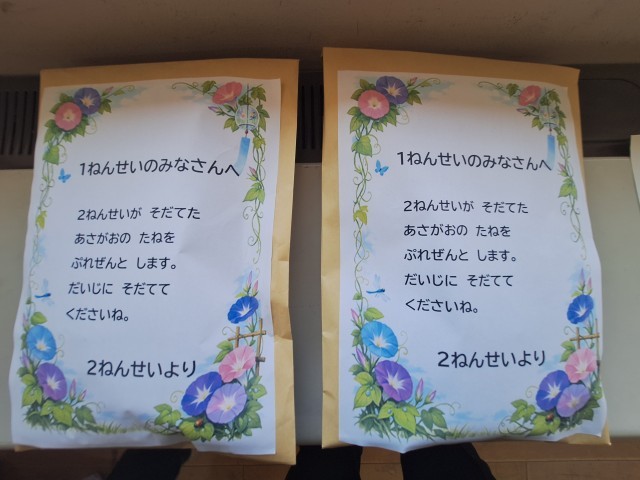 1ねんせいのみなさんへ
2ねんせいが そだてた
あさがおの たねを
ぷれぜんと します。
だいじに そだてて
くださいね。
2ねんせいより
1ねんせいのみなさんへ
2ねんせいが そだてた
あさがおの たねを
ぷれぜんと します。
だいじに そだてて
くださいね。
2ねんせいより